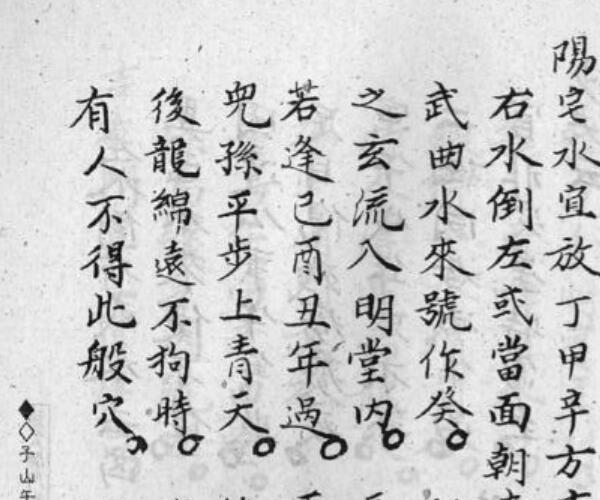 陽宅水宜放丁甲辛方
右水倒左或當面朝
武曲水來號作癸
之玄流入明堂内
若逢己酉丑年過
兒孫平步上青天
後龍綿遠不狗時
有人不得此般穴
子山午